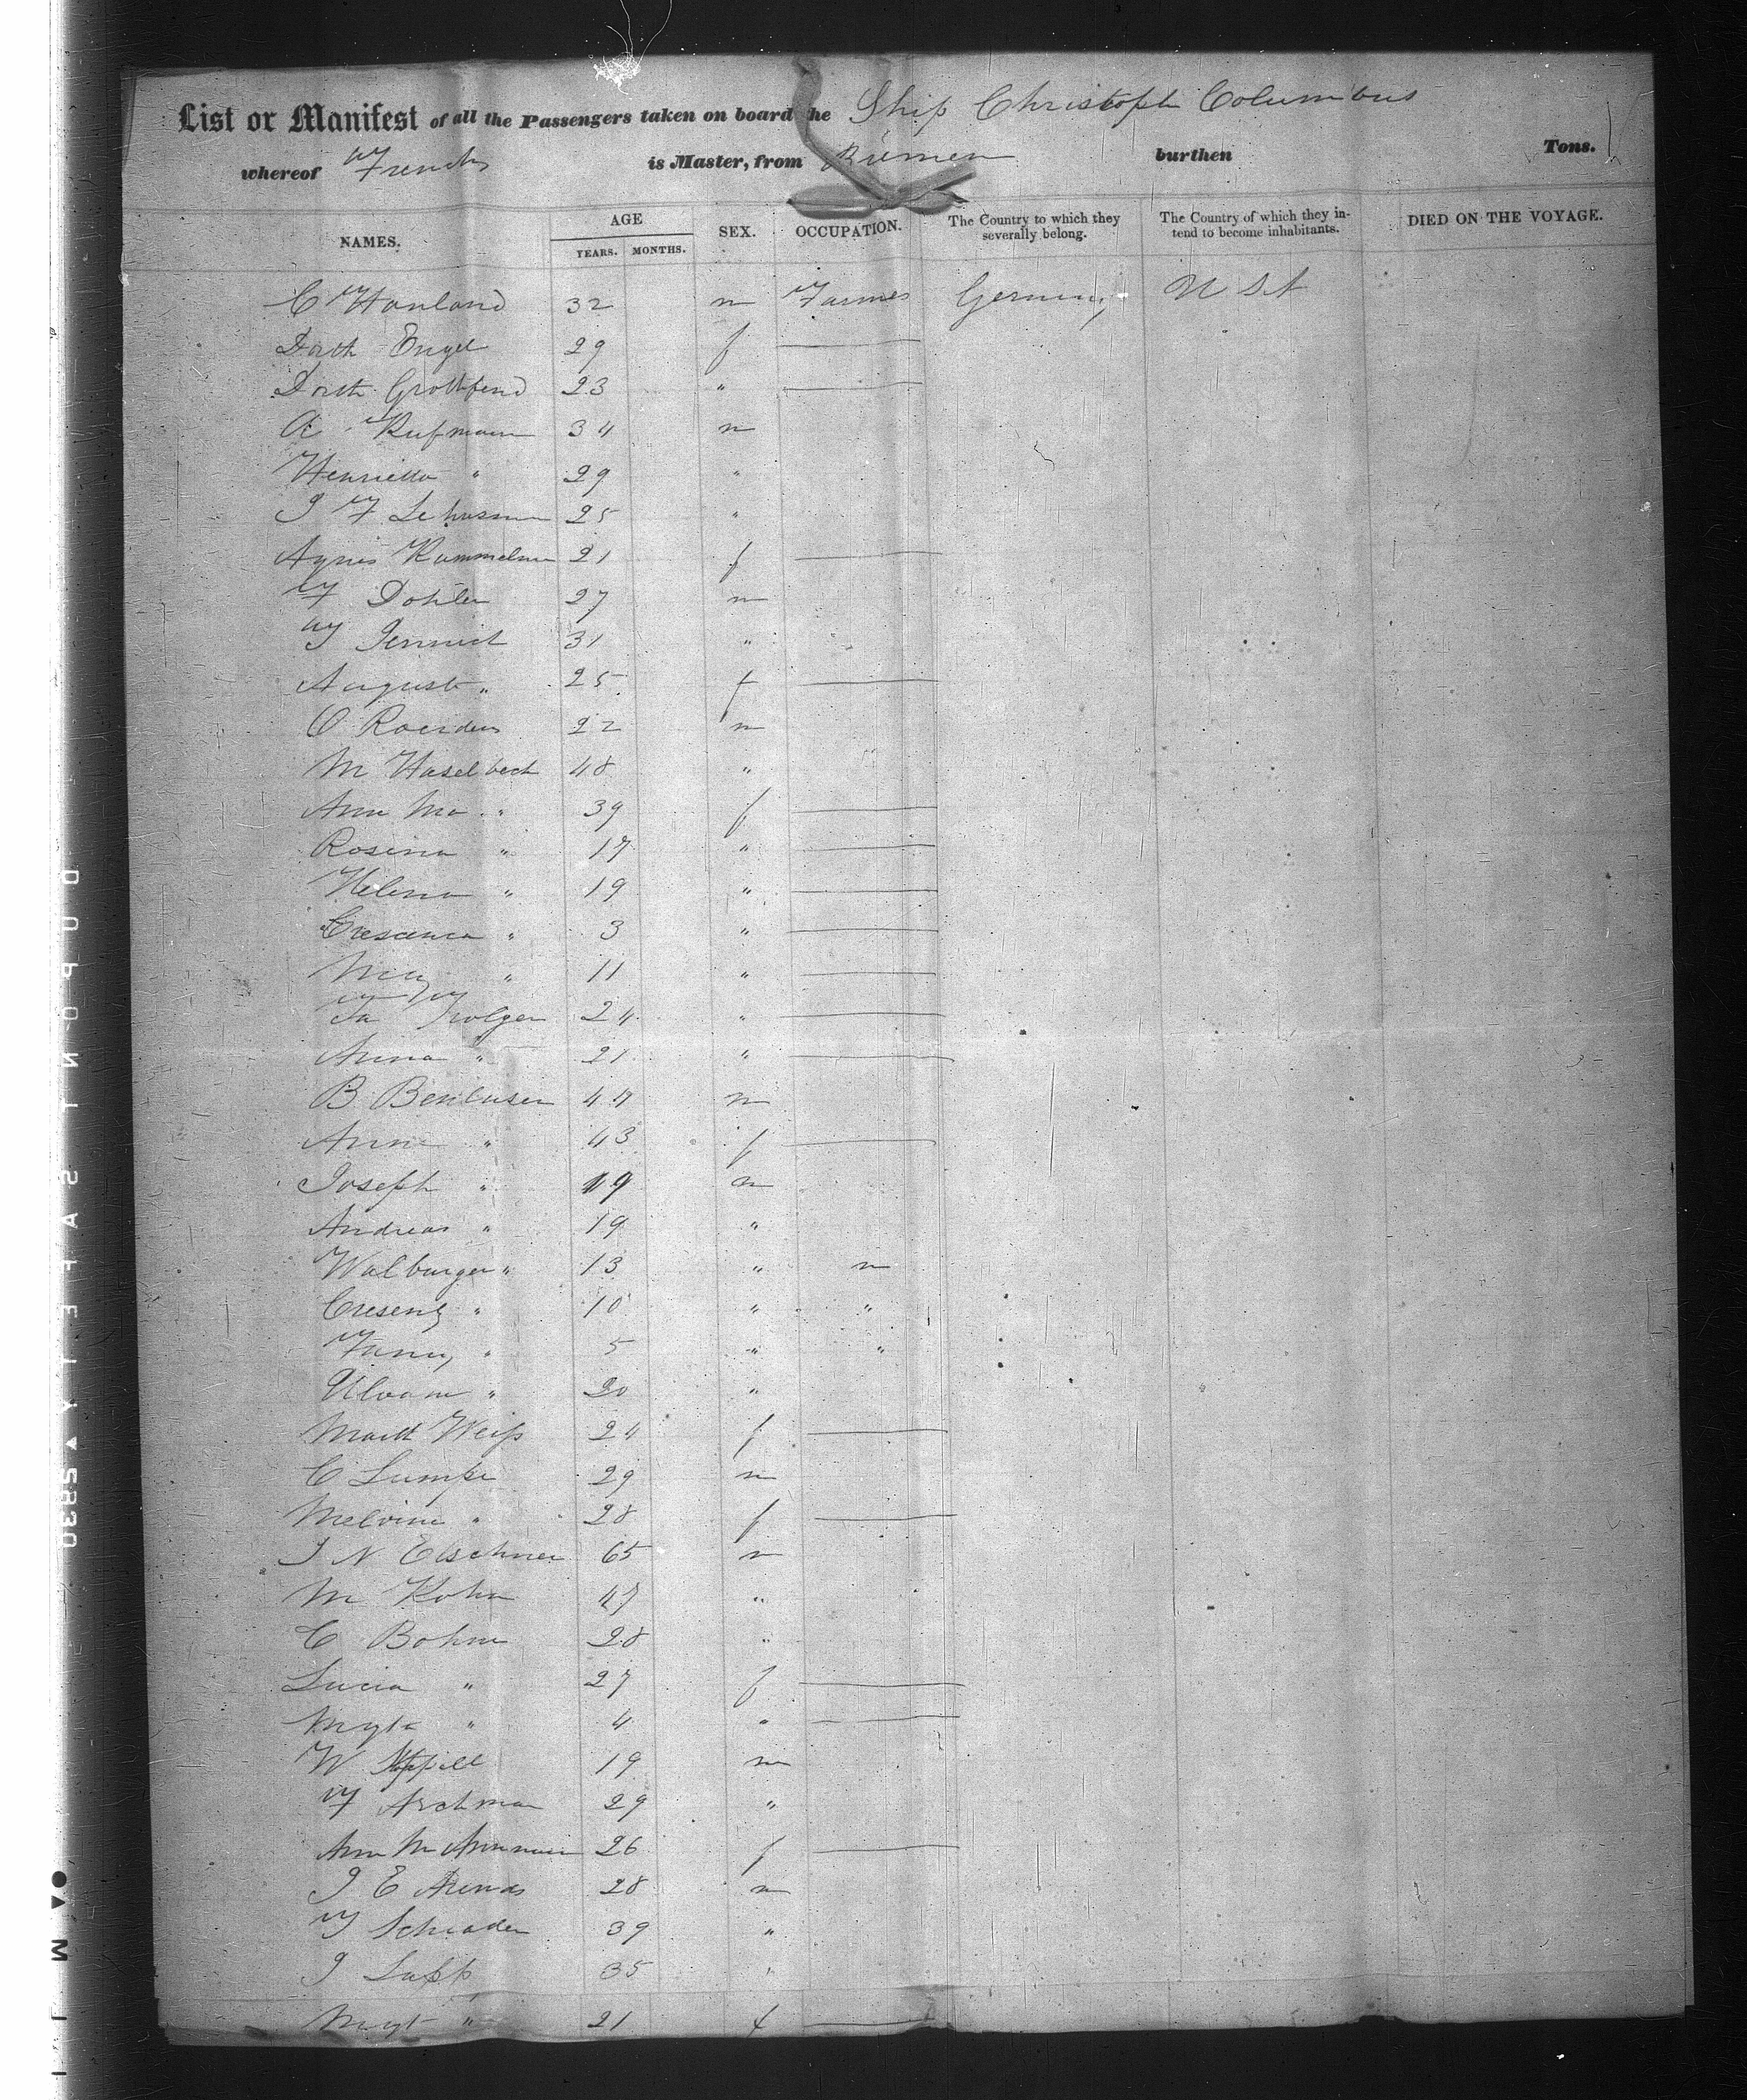 List or Manifest of all the Passengers taken on board the Ship Christoph Columbus
whereof is Master, from Bremen burthen Tons.
NAMES. AGE YEARS. MONTHS. SEX. OCCUPATION. The Country to which they severally belong. The Country of which they intend to become inhabitants. DIED ON THE VOYAGE.
C Hanland 32 m Farmer Germany U S A
Dorth Engel 29 f
Dorth Grottfend 23 "
A Rufmann 34 m
Henrietta " 29 "
I F 25 "
Agnes 21 f
F Dohler 27 m
F 31 "
August " 25 f
C 22 m
M Haselbech 48 "
Ann Ma " 39 f
Rosina " 17 "
Helena " 19 "
3 "
11 "
24 "
Anna " 21 "
B 44 m
Ann " 43 f
Joseph " 19 m
Andreas " 19 "
Walburger " 13 " m
Cresenz " 10 " "
Fanny " 5 " "
" 20 "
Weiss 24 f
C Lumpe 29 m
Melvine " 28 f
J N Elschner 65 m
M Kohn 47 "
C Bohm 28 "
Lucia " 27 f
Mgta " 4 "
W 19 m
F 29 "
Ann M 26 f
J E Arends 28 m
F Schrader 39 "
J Lapp 35 "
Mgt " 21 f